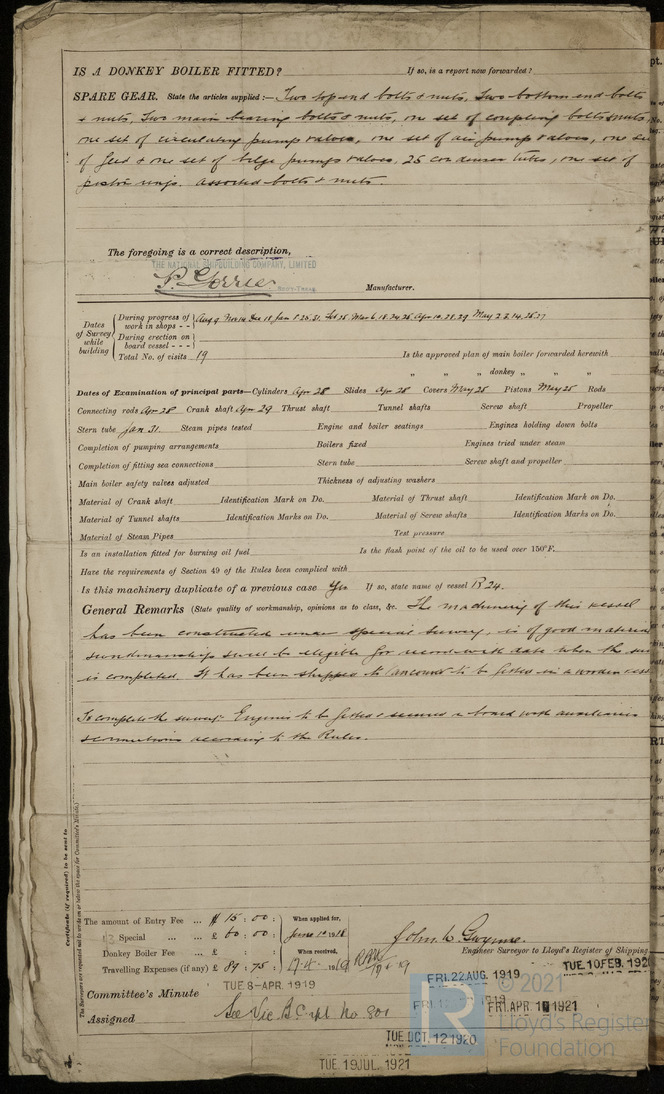 IS A DONKEY BOILER FITTED? If so, is a report now forwarded?
SPARE GEAR. State the articles supplied:— Two top end bolts & nuts, Two bottom end bolts
& nuts, Two main bearing bolts & nuts, one set of coupling bolts & nuts,
one set of circulating pump valves, one set of air pump valves, one set
of feed & one set of bilge pumps valves, 25 condenser tubes, one set of
piston rings. Assorted bolts & nuts.
The foregoing is a correct description,
THE NATIONAL SHIPBUILDING COMPANY, LIMITED
P. Gorrie
Manufacturer.
Dates of Survey while building
During progress of work in shops - - Aug 9 Nov 14 Dec 18 Jan 8 25. 31. Feb 25 Mar 6. 18. 24. 26 Apr 10. 28. 29 May 2. 2. 14. 25. 27
During erection on board vessel - - -
Total No. of visits 19
Is the approved plan of main boiler forwarded herewith
" " " donkey " " "
Dates of Examination of principal parts—Cylinders Apr 28 Slides Apr 28 Covers May 25 Pistons May 25 Rods
Connecting rods Apr 28 Crank shaft Apr 29 Thrust shaft Tunnel shafts Screw shaft Propeller
Stern tube Jan 31. Steam pipes tested Engine and boiler seatings Engines holding down bolts
Completion of pumping arrangements Boilers fixed Engines tried under steam
Completion of fitting sea connections Stern tube Screw shaft and propeller
Main boiler safety valves adjusted Thickness of adjusting washers
Material of Crank shaft Identification Mark on Do. Material of Thrust shaft Identification Mark on Do.
Material of Tunnel shafts Identification Marks on Do. Material of Screw shafts Identification Marks on Do.
Material of Steam Pipes Test pressure
Is an installation fitted for burning oil fuel Is the flash point of the oil to be used over 150°F.
Have the requirements of Section 49 of the Rules been complied with
Is this machinery duplicate of a previous case Yes If so, state name of vessel B 24.
General Remarks (State quality of workmanship, opinions as to class, &c. The machinery of this vessel
has been constructed under special survey, is of good material
& workmanship & will be eligible for record with date when the
is completed. It has been shipped to Vancouver to be fitted in a wooden
To complete the survey: Engines to be fitted & secured on board with auxiliaries
& connections according to the Rules.
Certificate (if required) to be sent to
(The Surveyors are requested not to write on or below the space for Committee's Minute.)
The amount of Entry Fee ... $ 15 : 00 : When applied for,
Special ... ... £ 60 : 00 : June 1st 1918
Donkey Boiler Fee ... £ : : When received,
Travelling Expenses (if any) £ 89 : 75 :
John W. Gwynne.
Engineer Surveyor to Lloyd's Register of Shipping
Committee's Minute TUE 8-APR. 1919
FRI. 22 AUG. 1919
TUE. 10 FEB. 192
FRI. APR 1 1921
Assigned See Vic B.C. rpt No. 801
TUE. OCT. 12 1920
TUE. 19 JUL. 1921
© 2021
Lloyd's Register
Foundation